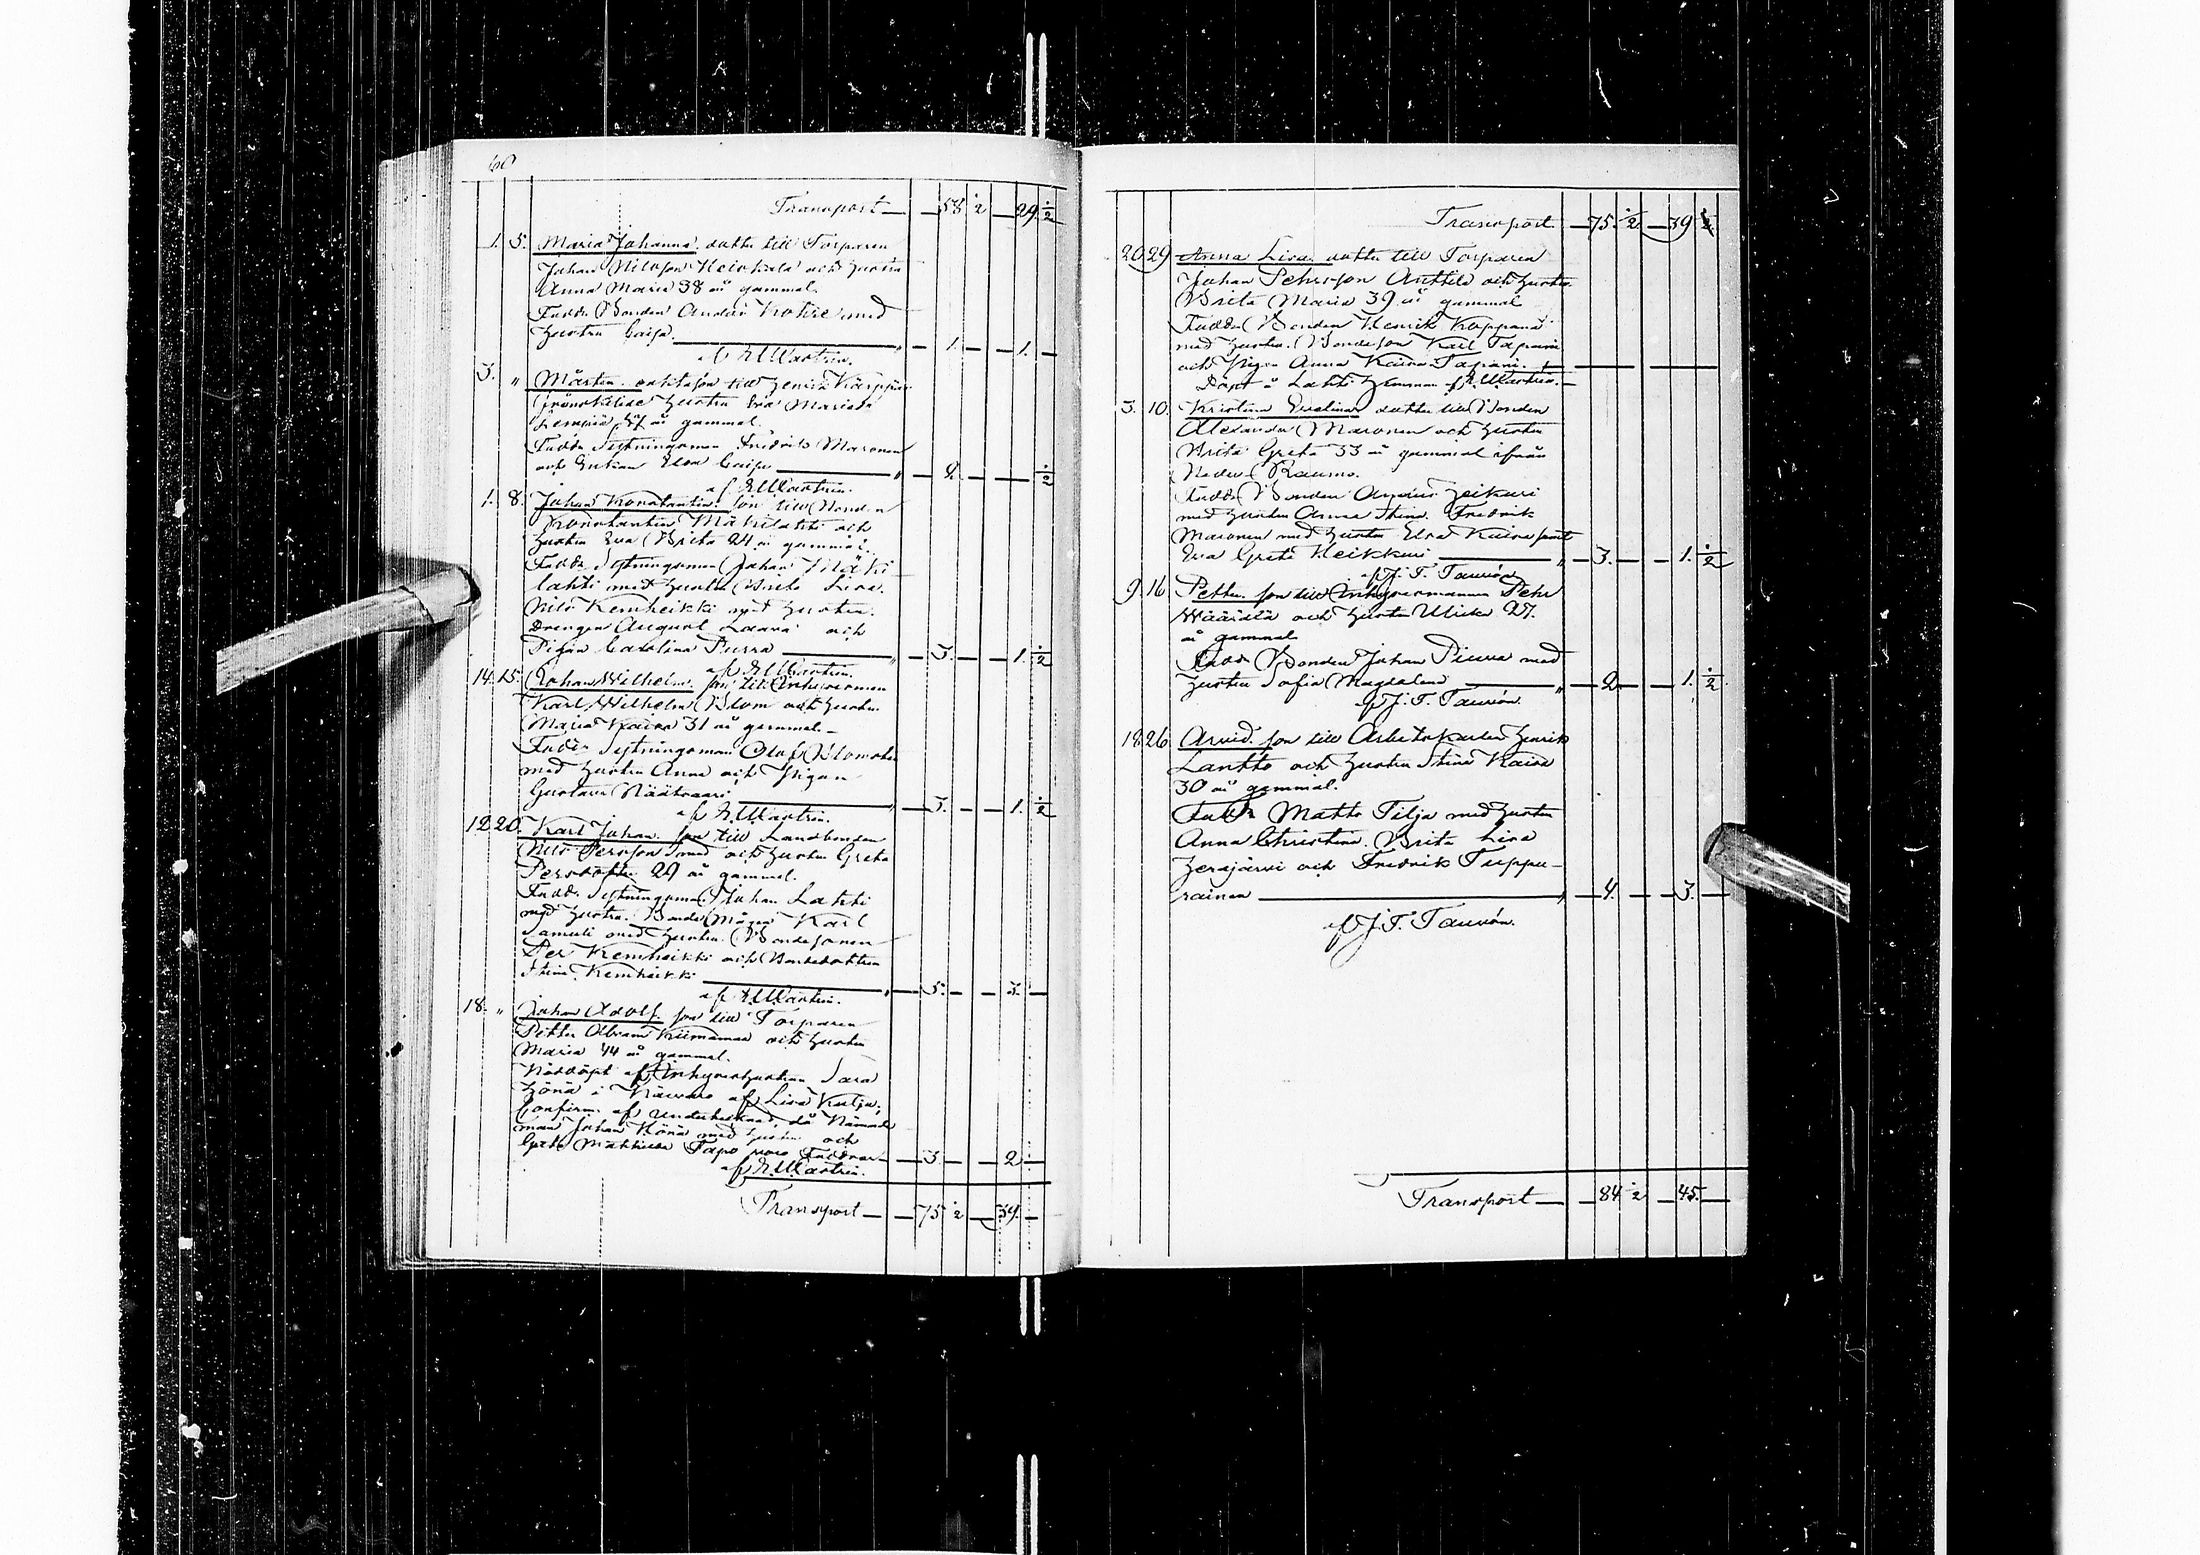 Transport — 58 ½ — 29 ½
1. 5. Maria Johanna. dotter till Torparen
Johan Nilsson Heiskala och hustru
Anna Maria 38 år gammal.
Fadd. Bonden Anders Kokke med
hustru Caisa. — 1. — 1. —
af E. W. Castrén.
3. " Mårten. son till Henrik Karppi
hustru Eva Maria
år gammal.
Fadd. Sytningsman Fredrik Maronen
och Enkan Elsa Caisa — 2. — ½
af E. W. Castrén.
1. 8. Johan Konstantin. son till Bonden
Konstantin Mäkilahti och
hustru Eva Brita 24 år gammal.
Fadd. Sytningsman Johan Mäki
lahti med hustru Brita Lisa.
Nils Kemheikki med hustru.
Drengen August Laara och
Pigan Carolina Purra — 5. — 1. ½
af E. W. Castrén.
14. 15. Johan Wilhelm. son till Inhysesman
Karl Wilhelm Blom och hustru
Maria Kaisa 31 år gammal.
Fadd. Sytningsman Olof Blomster
med hustru Anna och Pigan
Gustava Määttaari — 3. — 1. ½
af E. W. Castrén.
12. 20. Karl Johan. son till Landbonden
Nils Persson och hustru Greta
Persdotter 29 år gammal.
Fadd. Sytningsman Johan Lahti
med hustru. Bonde Mågen Karl
Samuli med hustru. Bondesonen
Per Kemheikki och Bondedottren
Stina Kemheikki — 5. — 3. —
af E. W. Castrén.
18. " Johan Adolf. son till Torparen
Petter Abram Kiimamaa och hustru
Maria 44 år gammal.
Nöddöpt af Inhyseshustrun Sara
Hönä i af Lisa
Confirm. af undertecknad, då Nämnde
man Johan Hönä med hustru och
Greta Tapo voro Faddrar — 3. — 2 —
af E. W. Castrén.
Transport — 75 ½ — 39. —
Transport — 75. ½ — 39
20 29 Anna Lisa. dotter till Torparen
Johan Pehrsson Anttila och hustru
Brita Maria 39 år gammal
Fadd. Bonden Henrik Koppana
med hustru. Bondeson Karl Tapani
och Pigan Anna Kaisa Tapani. —
Döpt å Lahti Hemman af E. W. Castrén.
3. 10. Kristina Evelina. dotter till Bonden
Alexander Maronen och hustru
Brita Greta 33 år gammal ifrån
Neder Raumo.
Fadd. Bonden Anders Heikuri
med hustru Anna Stina. Fredrik
Maronen med hustru Elsa Kaisa samt
Eva Greta Heikkuri — 3. — 1. ½
af J. F. Taucén.
9. 16 Petter. son till Inhysesmannen Pehr
Määtälä och hustru Ulrika 27.
år gammal.
Fadd. Bonden Johan Piuva med
hustru Sofia Magdalena — 2 — 1. ½
af J. F. Taucén.
18. 26. Arvid. son till Arbetskarlen Henrik
Lantto och hustru Stina Kaisa
30 år gammal.
Fadd. Matts Tilja med hustru
Anna Christina. Brita Lisa
Herajärvi och Fredrik Tuppu-
rainen — 4. — 3. —
af J. F. Taucén.
Transport — 84 ½ — 45. —